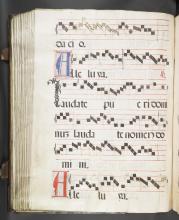 da ci o.
Alle lu ya.
Laudate pu e ri dom
nuz lauda te nomen do
mi ni.
Alle lu ya.